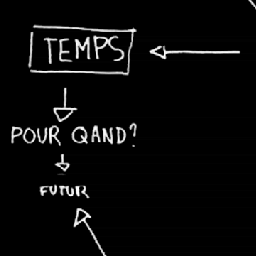 TEMPS
POUR QAND?
FUTUR